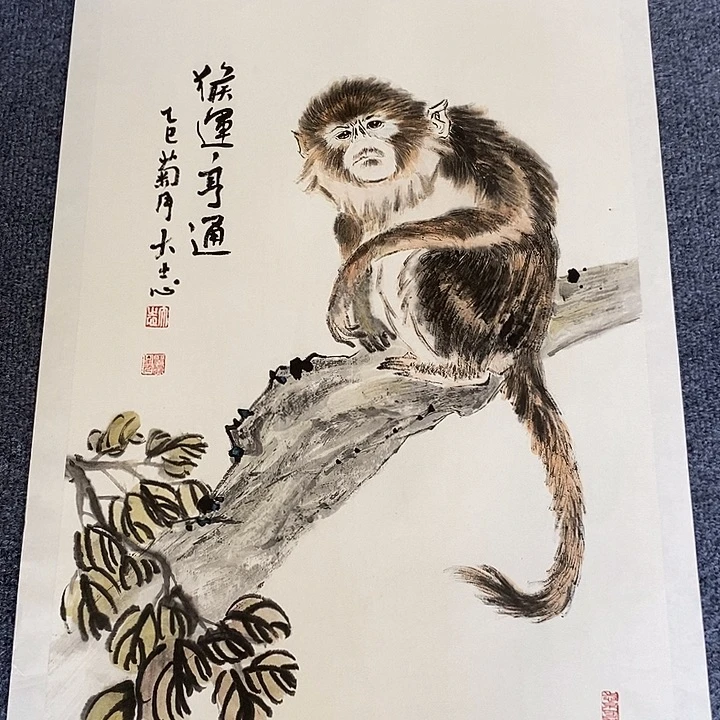 猴運亨通
乙巳菊月大志